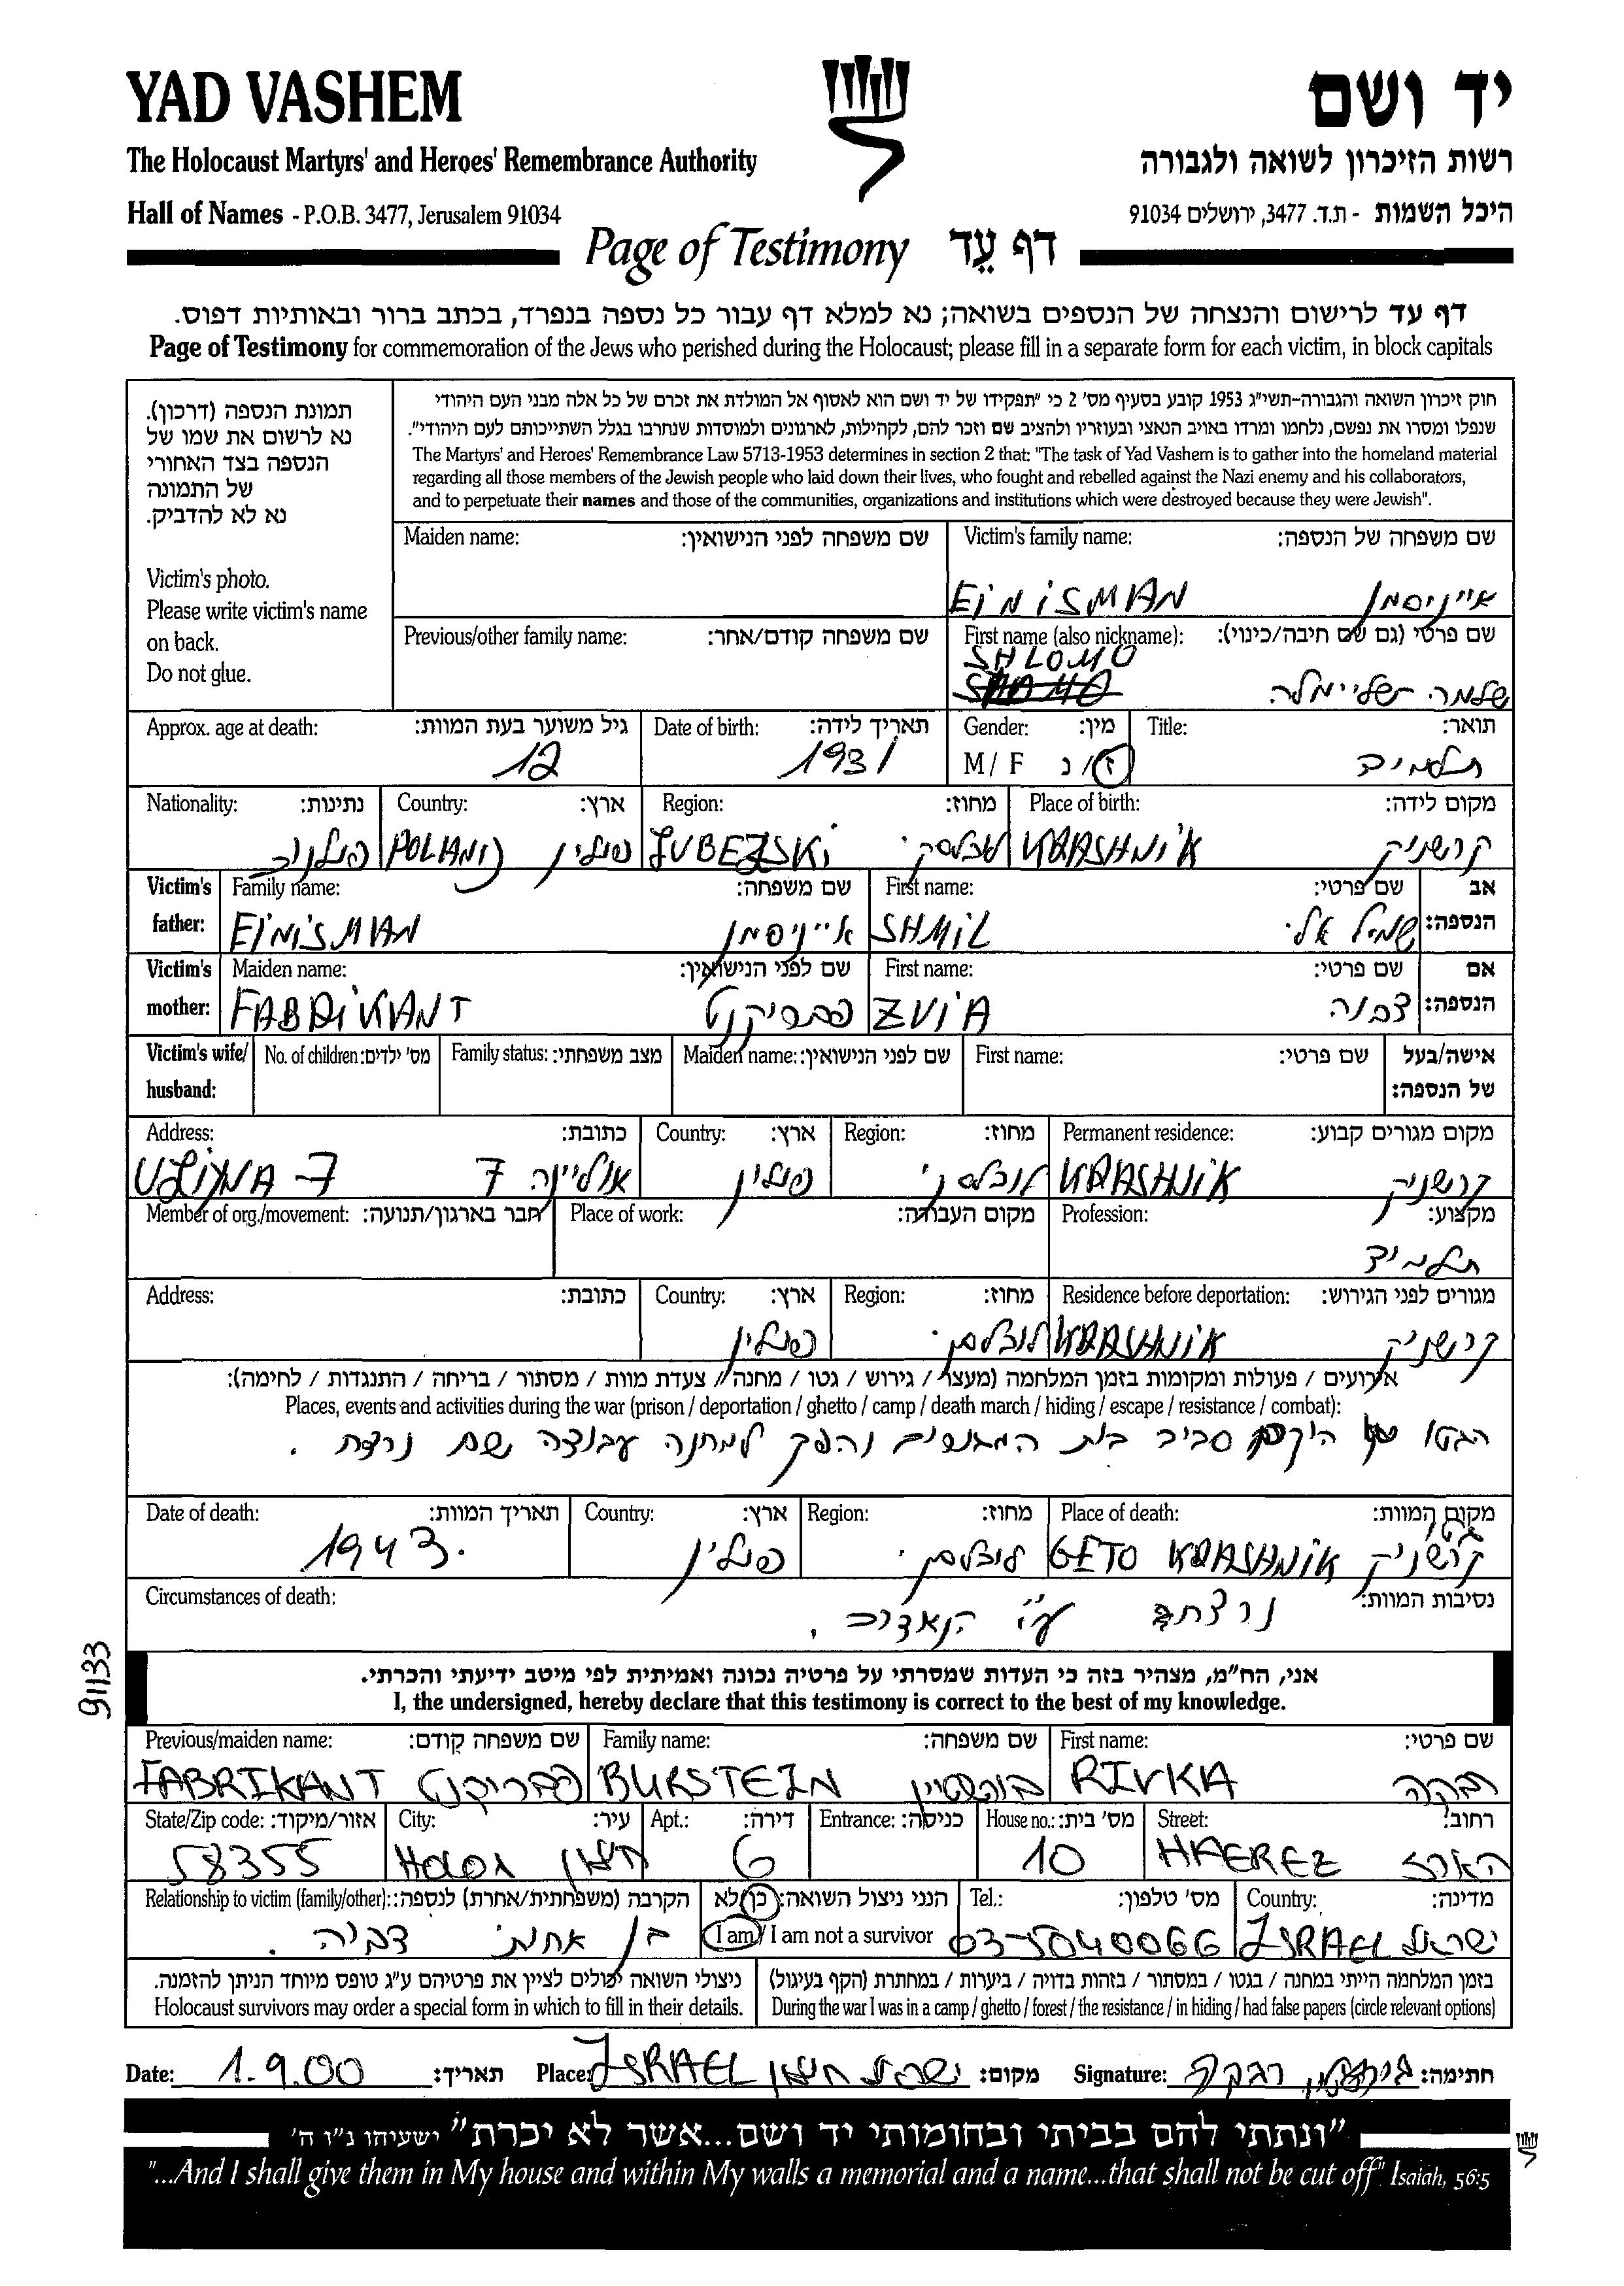 YAD VASHEM
יד ושם
The Holocaust Martyrs' and Heroes' Remembrance Authority
רשות הזיכרון לשואה ולגבורה
Hall of Names - P.O.B. 3477, Jerusalem 91034
היכל השמות - ת.ד. 3477, ירושלים 91034
Page of Testimony דף עֵד
דף עד לרישום והנצחה של הנספים בשואה; נא למלא דף עבור כל נספה בנפרד, בכתב ברור ובאותיות דפוס.
Page of Testimony for commemoration of the Jews who perished during the Holocaust; please fill in a separate form for each victim, in block capitals
תמונת הנספה (דרכון).
נא לרשום את שמו של
הנספה בצד האחורי
של התמונה
נא לא להדביק.
Victim's photo.
Please write victim's name
on back.
Do not glue.
חוק זיכרון השואה והגבורה-תשי"ג 1953 קובע בסעיף מס' 2 כי "תפקידו של יד ושם הוא לאסוף אל המולדת את זכרם של כל אלה מבני העם היהודי
שנפלו ומסרו את נפשם, נלחמו ומרדו באויב הנאצי ובעוזריו ולהציב שם וזכר להם, לקהילות, לארגונים ולמוסדות שנחרבו בגלל השתייכותם לעם היהודי".
The Martyrs' and Heroes' Remembrance Law 5713-1953 determines in section 2 that: "The task of Yad Vashem is to gather into the homeland material
regarding all those members of the Jewish people who laid down their lives, who fought and rebelled against the Nazi enemy and his collaborators,
and to perpetuate their names and those of the communities, organizations and institutions which were destroyed because they were Jewish".
Maiden name: שם משפחה לפני הנישואין:
Victim's family name: שם משפחה של הנספה:
EINISMAN אייניסמן
Previous/other family name: שם משפחה קודם/אחר:
First name (also nickname): שם פרטי (גם שם חיבה/כינוי):
SHLOMO
שלמה שליימלה
Approx. age at death: גיל משוער בעת המוות:
12
Date of birth: תאריך לידה:
1931
Gender: מין:
M / F ז/נ
Title: תואר:
תלמיד
Nationality: נתינות:
Country: ארץ:
POLAND פולין
Region: מחוז:
LUBELSKI לובלסקי
Place of birth: מקום לידה:
KRASHNIK קרשניק
Victim's father: אב הנספה:
Family name: שם משפחה:
EINISMAN אייניסמן
First name: שם פרטי:
SHMIL שמיל אלי
Victim's mother: אם הנספה:
Maiden name: שם לפני הנישואין:
FABRIKANT פבריקנט
First name: שם פרטי:
ZVIA צביה
Victim's wife/husband: אישה/בעל של הנספה:
No. of children: מס' ילדים:
Family status: מצב משפחתי:
Maiden name: שם לפני הנישואין:
First name: שם פרטי:
Address: כתובת:
ULIXNA 7 אוליינה 7
Country: ארץ:
פולין
Region: מחוז:
לובלסקי
Permanent residence: מקום מגורים קבוע:
KRASHNIK קרשניק
Member of org./movement: חבר בארגון/תנועה:
Place of work: מקום העבודה:
Profession: מקצוע:
תלמיד
Address: כתובת:
Country: ארץ:
פולין
Region: מחוז:
לובלסקי
Residence before deportation: מגורים לפני הגירוש:
KRASHNIK קרשניק
אירועים / פעולות ומקומות בזמן המלחמה (מעצר / גירוש / גטו / מחנה / צעדת מוות / מסתור / בריחה / התנגדות / לחימה):
Places, events and activities during the war (prison / deportation / ghetto / camp / death march / hiding / escape / resistance / combat):
הגטו הוקם סביב בית והפך למחנה עבודה שם נרצח.
Date of death: תאריך המוות:
1943.
Country: ארץ:
פולין
Region: מחוז:
לובלסקי
Place of death: מקום המוות:
גטו
GETO KRASHNIK קרשניק
Circumstances of death: נסיבות המוות:
נרצח ע"י הנאצים.
91133
אני, הח"מ, מצהיר בזה כי העדות שמסרתי על פרטיה נכונה ואמיתית לפי מיטב ידיעתי והכרתי.
I, the undersigned, hereby declare that this testimony is correct to the best of my knowledge.
Previous/maiden name: שם משפחה קודם:
FABRIKANT פבריקנט
Family name: שם משפחה:
BURSTEIN בורשטיין
First name: שם פרטי:
RIVKA רבקה
State/Zip code: אזור/מיקוד:
58355
City: עיר:
HOLON חולון
Apt.: דירה:
6
Entrance: כניסה:
House no.: מס' בית:
10
Street: רחוב:
HAEREZ הארז
Relationship to victim (family/other): הקרבה (משפחתית/אחרת) לנספה:
בן אחותי צביה.
הנני ניצול השואה: כן/לא
I am / I am not a survivor
Tel.: מס' טלפון:
03-5040066
Country: מדינה:
ISRAEL ישראל
ניצולי השואה יכולים לציין את פרטיהם ע"ג טופס מיוחד הניתן להזמנה.
Holocaust survivors may order a special form in which to fill in their details.
בזמן המלחמה הייתי במחנה / בגטו / במסתור / בזהות בדויה / ביערות / במחתרת (הקף בעיגול)
During the war I was in a camp / ghetto / forest / the resistance / in hiding / had false papers (circle relevant options)
Date: 1.9.00 תאריך:
Place: ISRAEL ישראל חולון מקום:
Signature: בורשטיין רבקה חתימה:
"ונתתי להם בביתי ובחומותי יד ושם...אשר לא יכרת" ישעיהו נ"ו ה'
"...And I shall give them in My house and within My walls a memorial and a name...that shall not be cut off" Isaiah, 56:5